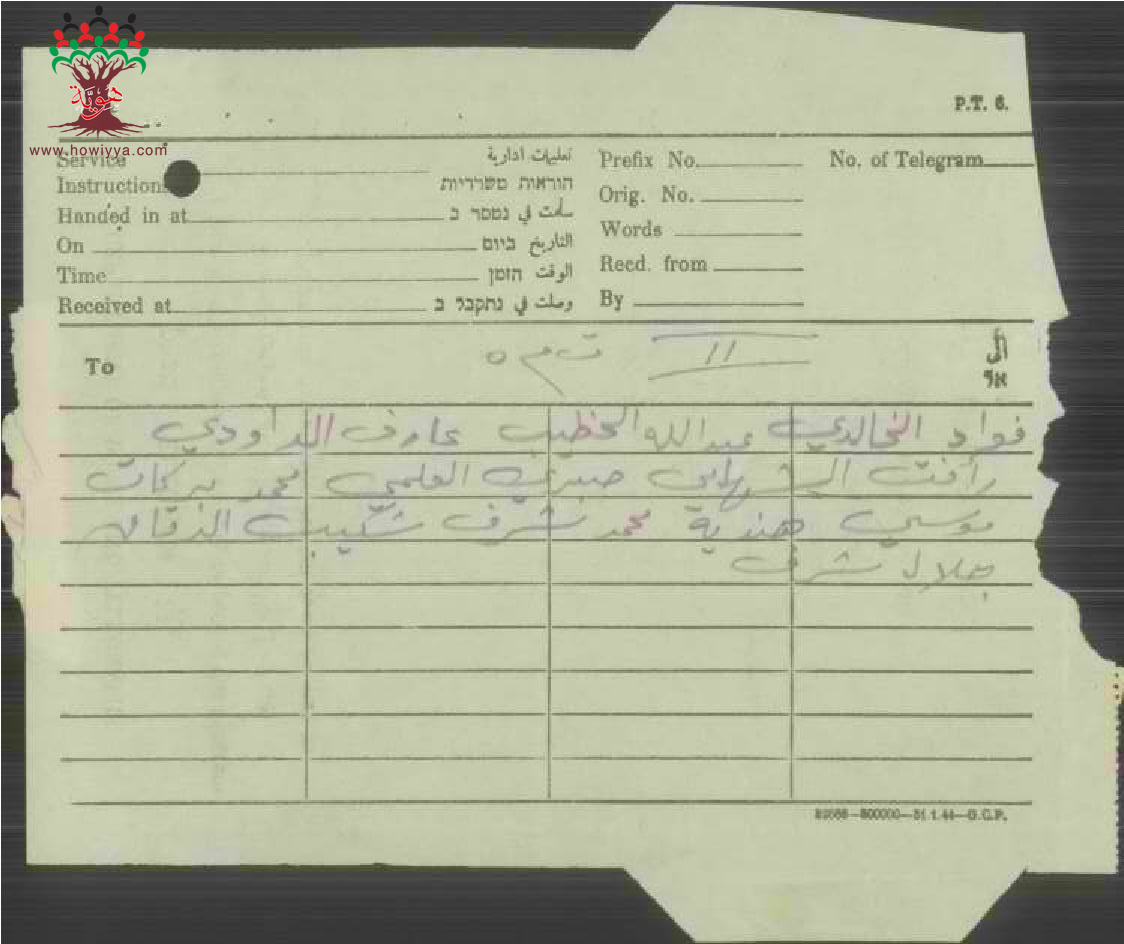 هوية
www.howiyya.com
P.T. 6.
Service تعليمات ادارية
Instructions הוראות משרדיות
Handed in at سلمت في נמסר ב
On التاريخ ביום
Time الوقت הזמן
Received at وصلت في נתקבל ב
Prefix No. No. of Telegram
Orig. No.
Words
Recd. from
By
To 11 الى
אל
فواد الخالدي عبدالله الخطيب عارف الداودي
رأفت صبري العلمي محمد بركات
موسى هندية محمد شرف شكيب
جلال شرف
500000—31.1.44—G.C.P.